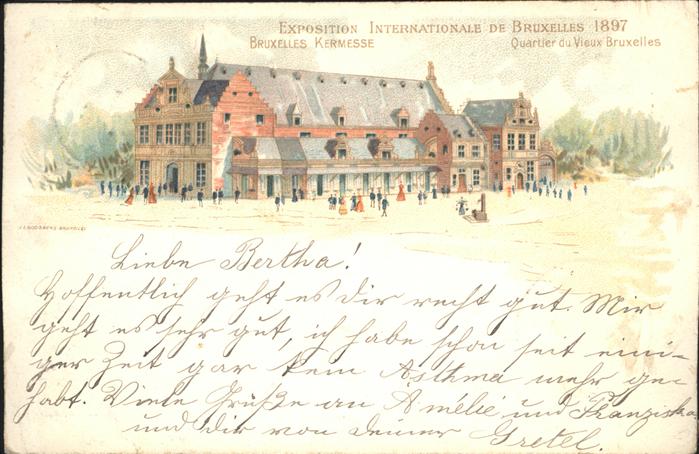 Exposition Internationale de Bruxelles 1897
Bruxelles Kermesse
Quartier du Vieux Bruxelles
Liebe Bertha!
Hoffentlich geht es dir recht gut. Mir
geht es sehr gut, ich habe schon seit eini-
ger Zeit gar kein Asthma mehr ge-
habt. Viele Grüße an Amélie und Franziska
und dir von deiner Gretel.